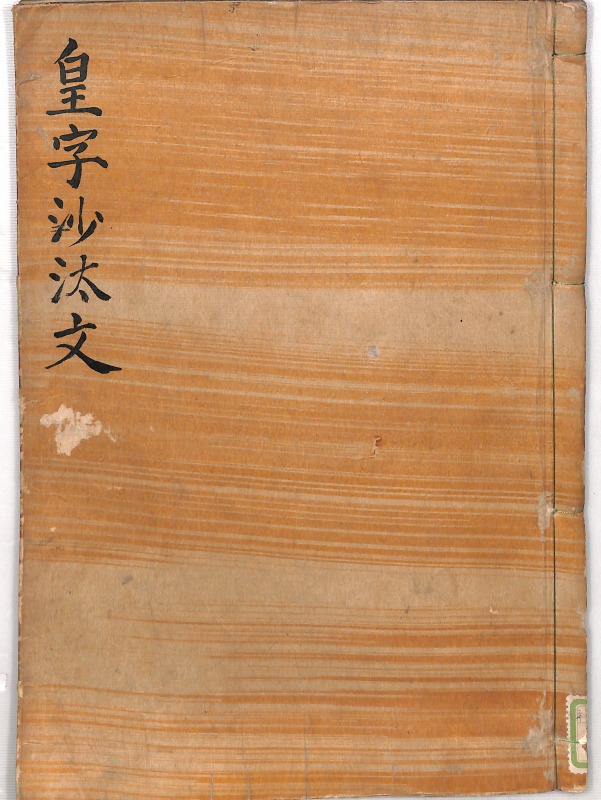 皇字沙汰文